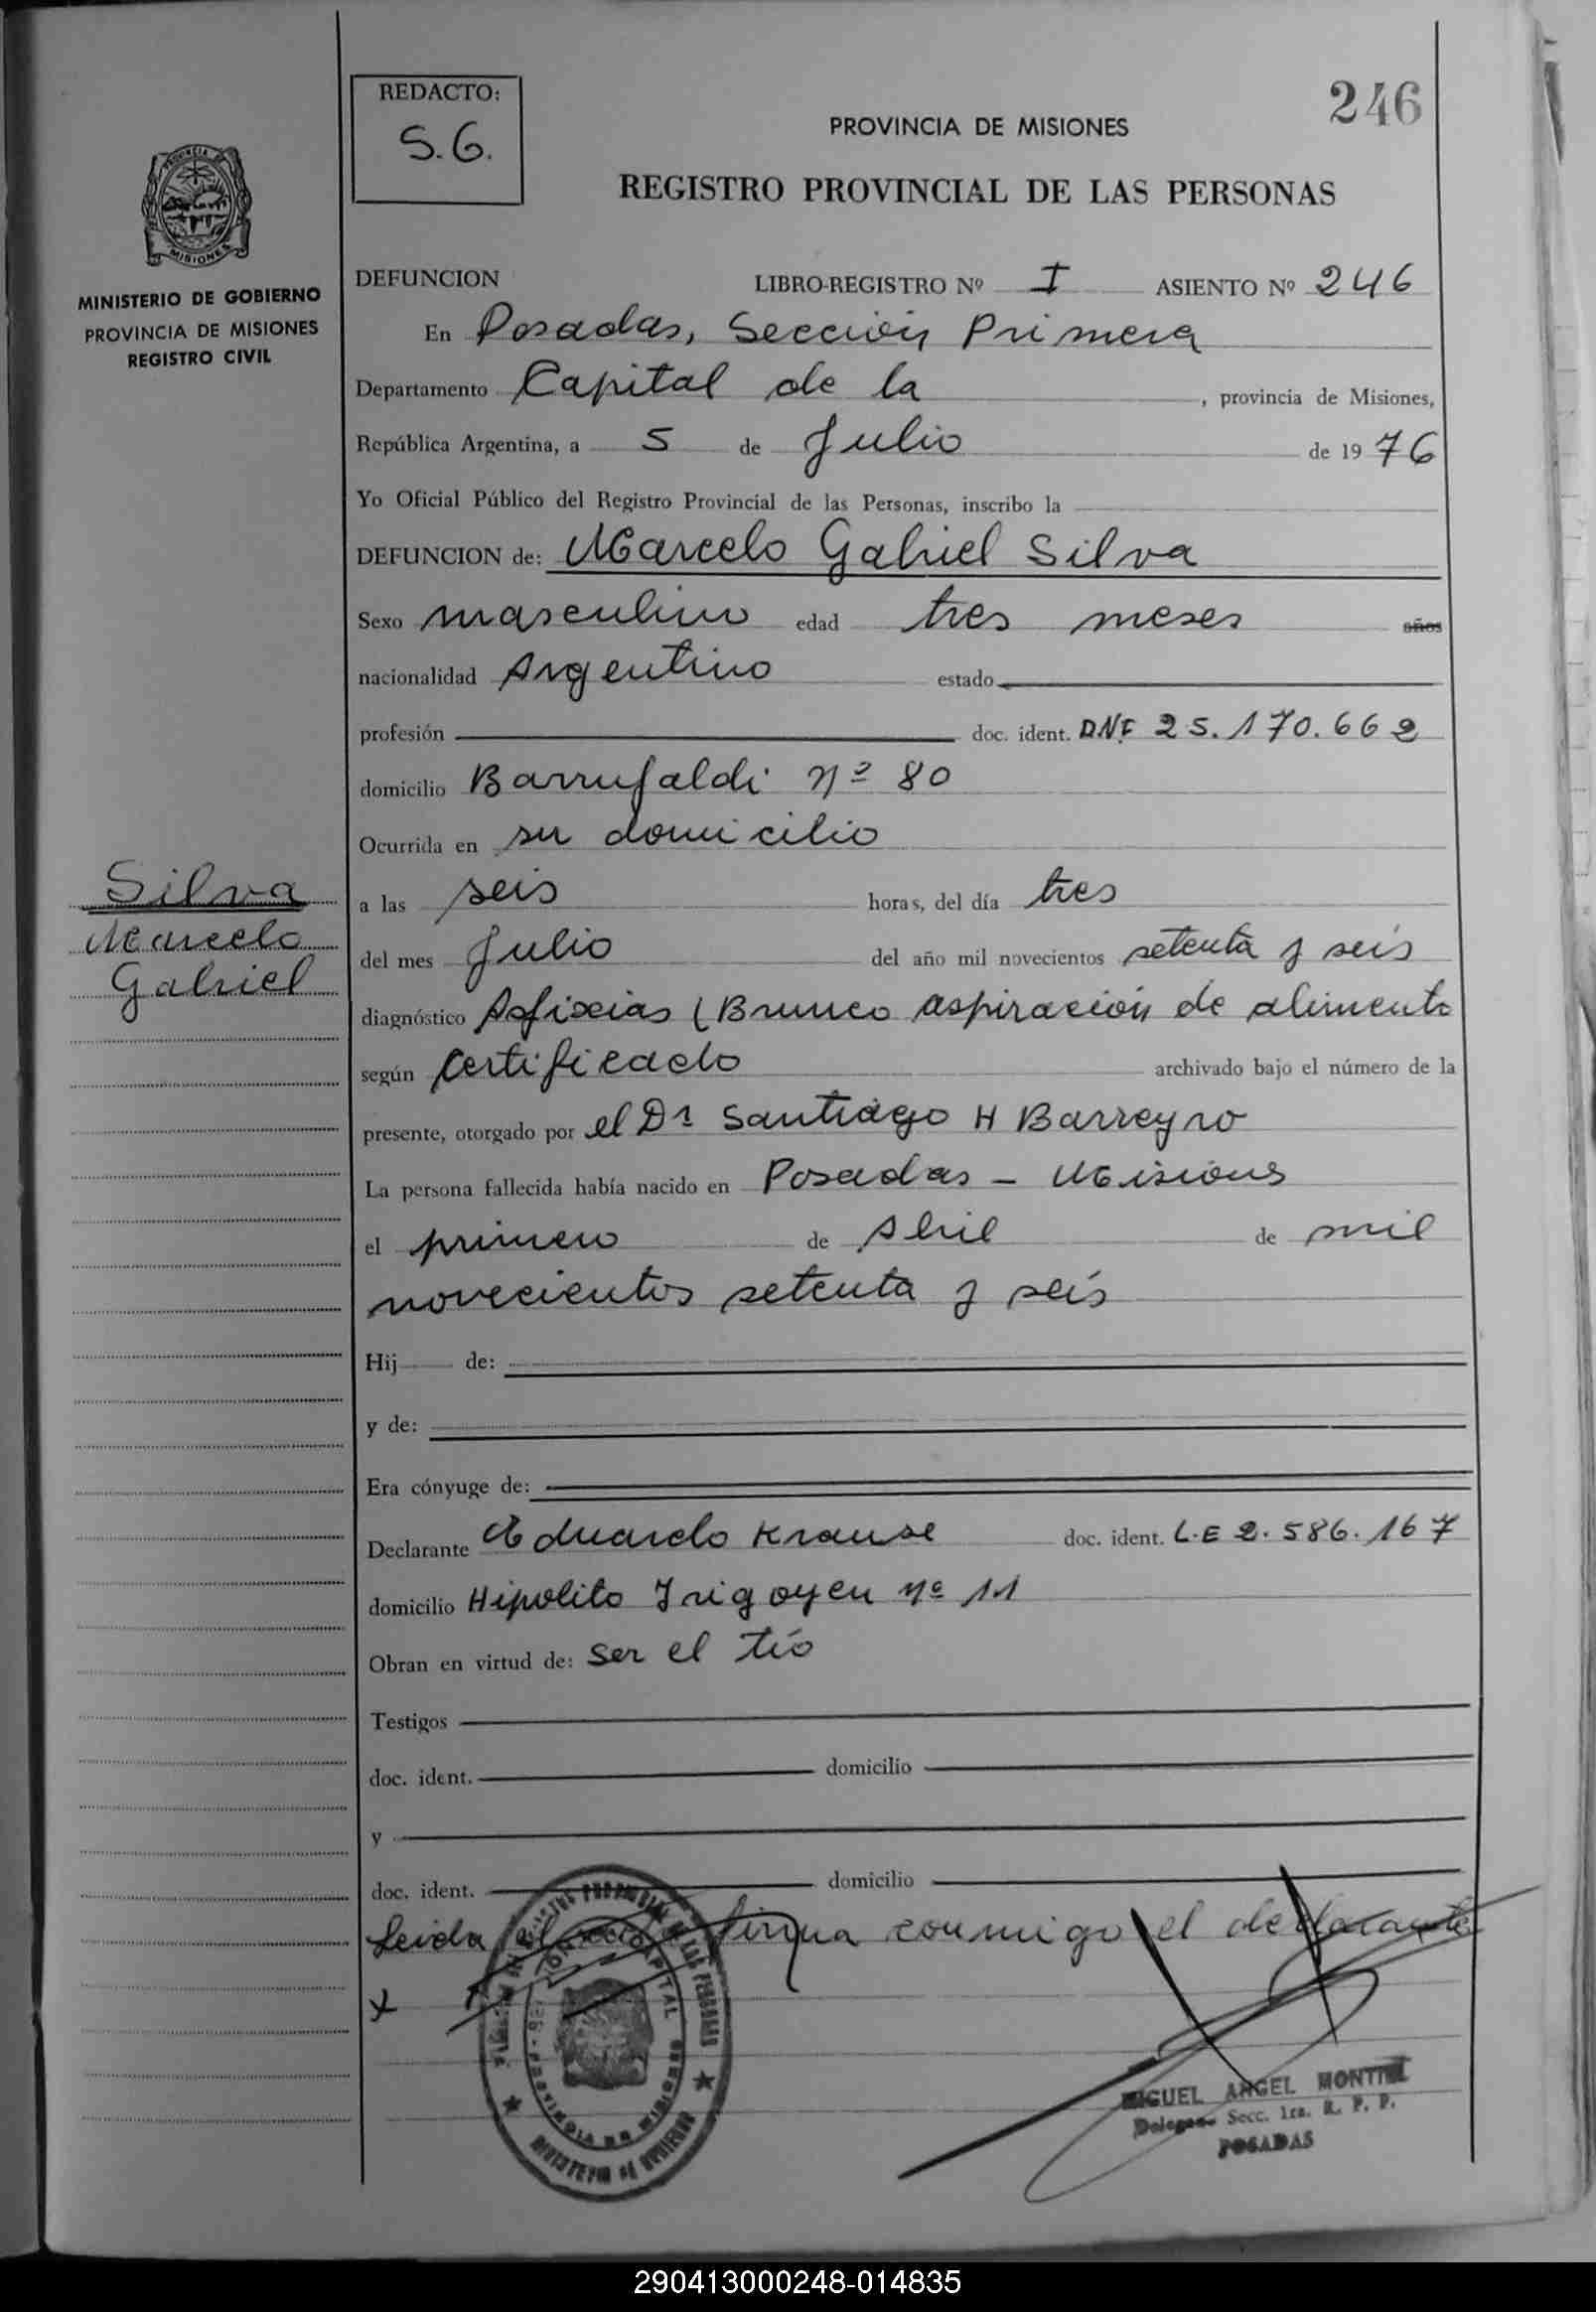 REDACTO:
S.G.
246
PROVINCIA DE MISIONES
REGISTRO PROVINCIAL DE LAS PERSONAS
MISIONES
MINISTERIO DE GOBIERNO
PROVINCIA DE MISIONES
REGISTRO CIVIL
DEFUNCION LIBRO-REGISTRO Nº I ASIENTO Nº 246
En Posadas, Sección Primera
Departamento Capital de la , provincia de Misiones,
República Argentina, a 5 de Julio de 1976
Yo Oficial Público del Registro Provincial de las Personas, inscribo la
DEFUNCION de: Marcelo Gabriel Silva
Sexo masculino edad tres meses años
nacionalidad Argentino estado
profesión doc. ident. DNI 25.170.662
domicilio Barrufaldi nº 80
Ocurrida en su domicilio
Silva
Marcelo
Gabriel
a las seis horas, del día tres
del mes Julio del año mil novecientos setenta y seis
diagnóstico Asfixias (Brunco aspiración de alimento
según Certificado archivado bajo el número de la
presente, otorgado por el Dr Santiago H Barreyro
La persona fallecida había nacido en Posadas - Misiones
el primero de Abril de mil
novecientos setenta y seis
Hij de:
y de:
Era cónyuge de:
Declarante Eduardo Krause doc. ident. L.E 2.586.167
domicilio Hipolito Irigoyen nº 11
Obran en virtud de: ser el tío
Testigos
doc. ident. domicilio
y
doc. ident. domicilio
Leida el acta firma conmigo el declarante
x
MIGUEL ANGEL MONTIEL
Secc. 1ra. R. P. P.
POSADAS
CAPITAL
PROVINCIA DE MISIONES
MINISTERIO DE GOBIERNO
290413000248-014835